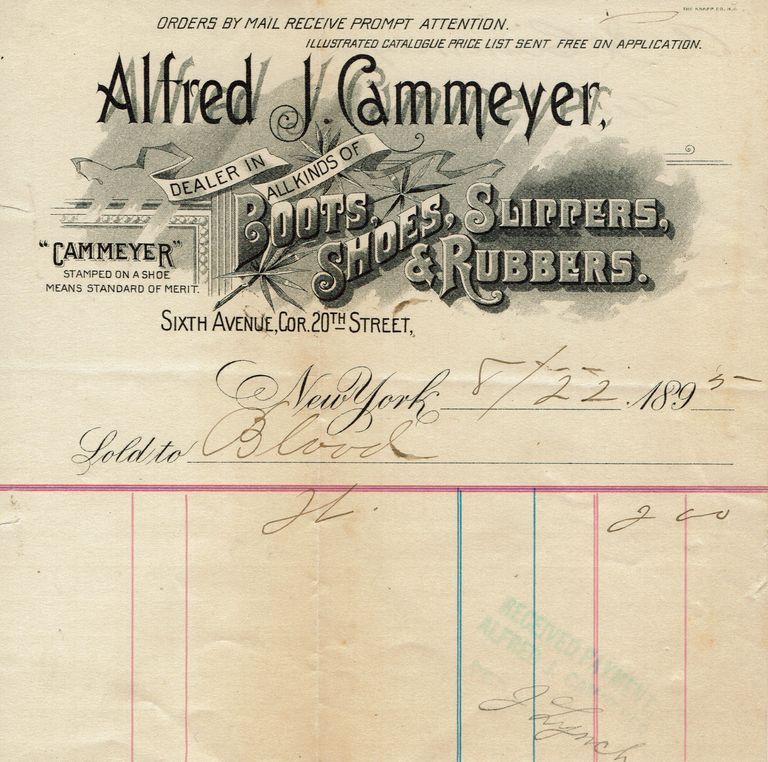 THE KNAPP CO. N.Y.
ORDERS BY MAIL RECEIVE PROMPT ATTENTION.
ILLUSTRATED CATALOGUE PRICE LIST SENT FREE ON APPLICATION.
Alfred J. Cammeyer,
DEALER IN ALL KINDS OF
BOOTS, SHOES, SLIPPERS,
& RUBBERS.
"CAMMEYER"
STAMPED ON A SHOE
MEANS STANDARD OF MERIT.
SIXTH AVENUE, COR. 20TH STREET,
New York 8/22 1895
Sold to Blood
2 00
RECEIVED PAYMENT
ALFRED J. CAMMEYER
J Lynch